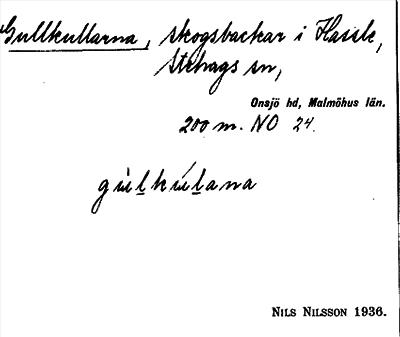 Gullkullarna, skogsbackar i Hassle,
Stehags sn,
Onsjö hd, Malmöhus län.
200 m. NO 24.
gùl̲kúl̲ana
NILS NILSSON 1936.